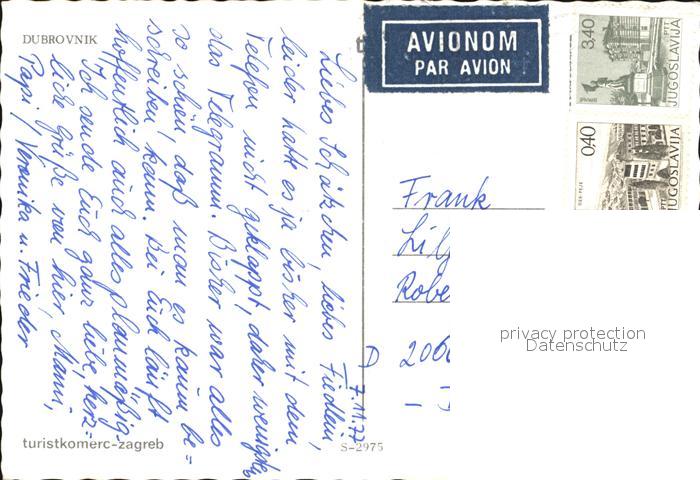 DUBROVNIK
Liebes Schätzchen, liebes Friedlein,
leider hatte es ja bisher mit dem
Telefon nicht geklappt, daher wenigstens
das Telegramm. Bisher war alles
so schön, daß man es kaum be=
schreiben kann. Bei Euch läuft
hoffentlich auch alles planmäßig.
Ich sende Euch ganz liebe, herz=
liche Grüße von hier, Mami,
Papi, Veronika u. Frieder
7.11.77
turistkomerc-zagreb
S-2975
AVIONOM
PAR AVION
3,40
PTT
JUGOSLAVIJA
0,40
JUGOSLAVIJA
Frank
Lilj
Robe
D 206
privacy protection
Datenschutz